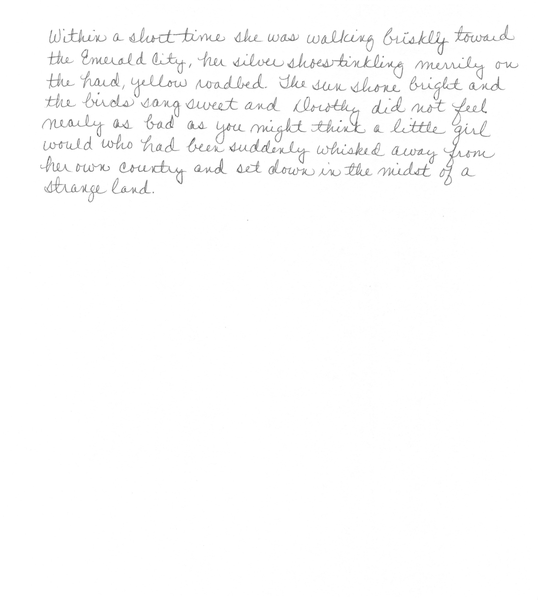 Within a short time she was walking briskly toward
the Emerald City, her silver shoes tinkling merrily on
the hard, yellow roadbed. The sun shone bright and
the birds sang sweet and Dorothy did not feel
nearly as bad as you might think a little girl
would who had been suddenly whisked away from
her own country and set down in the midst of a
strange land.